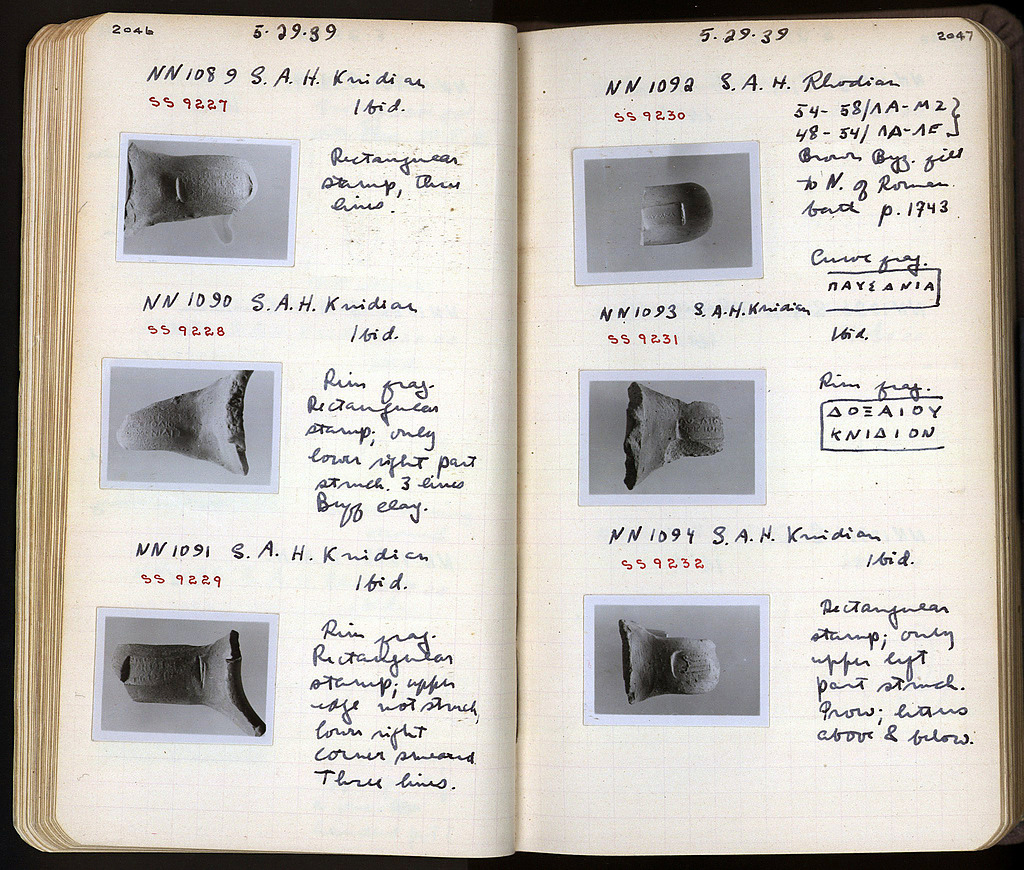 2046
5.29.39
NN1089 S.A.H. Knidian
SS 9227
Ibid.
Rectangular
stamp, three
lines.
NN1090 S.A.H. Knidian
SS 9228
Ibid.
Rim frag.
Rectangular
stamp; only
lower right part
struck. 3 lines
Buff clay.
NN1091 S.A.H. Knidian
SS 9229
Ibid.
Rim frag.
Rectangular
stamp; upper
edge not struck,
lower right
corner smeared
Three lines.
5.29.39
2047
NN1092 S.A.H. Rhodian
SS 9230
54-58/ΛA-M2
48-54/ΛA-ΛE
Brown Byz. fill
to N. of Roman
bath p. 1743
Curve frag.
ΠAYΣANIA
NN1093 S.A.H. Knidian
SS 9231
Ibid.
Rim frag.
ΔOΞAIOY
KNIΔION
NN1094 S.A.H. Knidian
SS 9232
Ibid.
Rectangular
stamp; only
upper left
part struck.
Prow; letters
above & below.